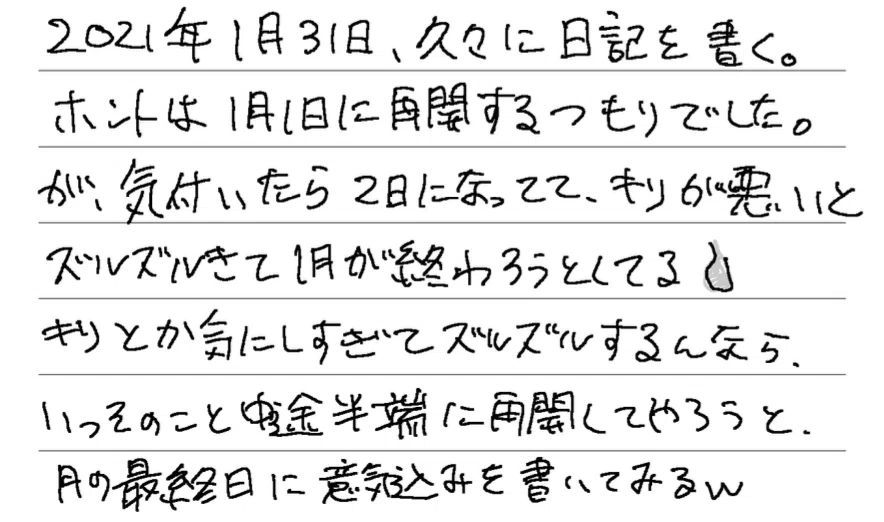 2021年1月31日、久々に日記を書く。
ホントは1月1日に再開するつもりでした。
が、気付いたら2日になってて、キリが悪いと
ズルズルきて1月が終わろうとしてる
キリとか気にしすぎてズルズルするんなら、
いっそのこと中途半端に再開してやろうと、
月の最終日に意気込みを書いてみるw